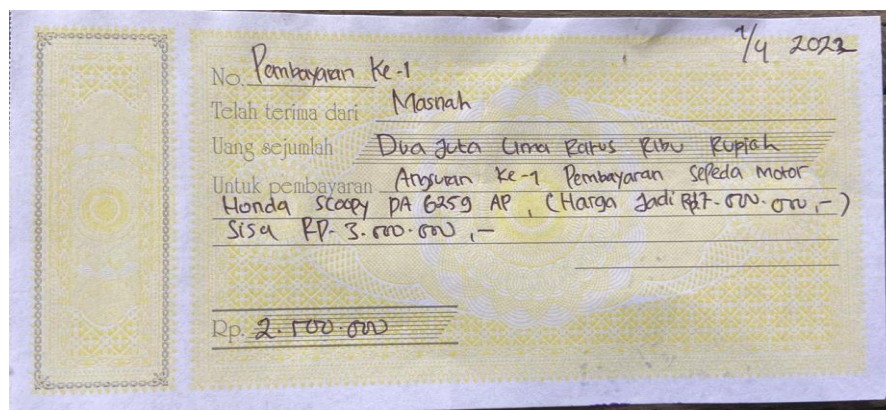 1/4 2023
No. Pembayaran Ke-1
Telah terima dari Masnah
Uang sejumlah Dua Juta Lima Ratus Ribu Rupiah
Untuk pembayaran Angsuran Ke-1 Pembayaran Sepeda Motor
Honda Scoopy DA 6259 AP, (Harga Jadi Rp7.500.000,-)
Sisa RP. 3.500.000,-
Rp. 2.500.000